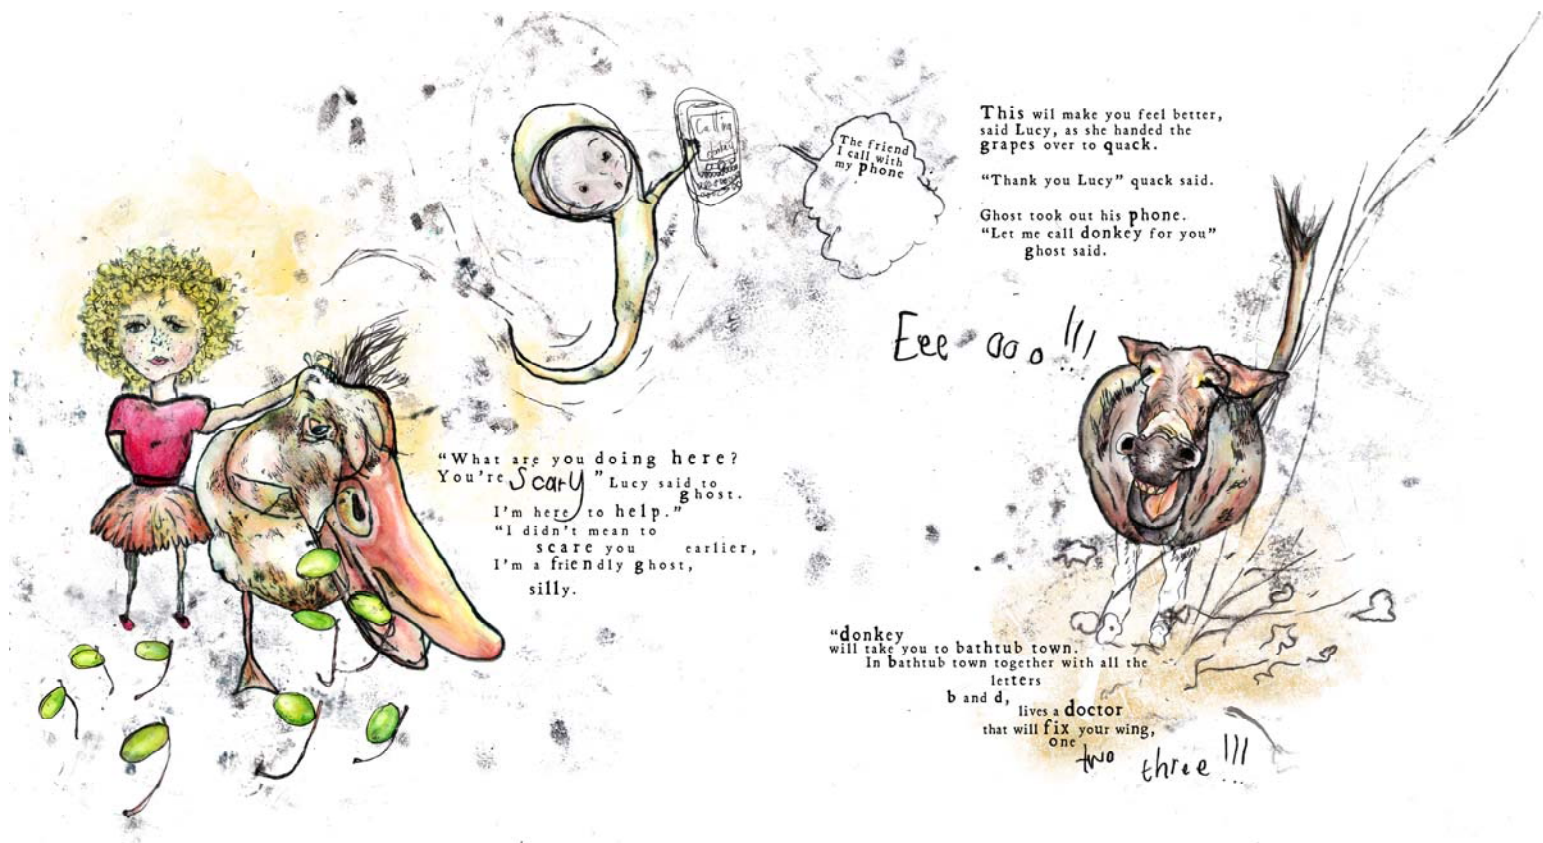 Calling
donkey
The friend
I call with
my phone
This wil make you feel better,
said Lucy, as she handed the
grapes over to quack.
“Thank you Lucy” quack said.
Ghost took out his phone.
“Let me call donkey for you”
ghost said.
Eee ooo!!!
“What are you doing here?
You're Scary” Lucy said to
ghost.
I'm here to help.”
“I didn't mean to
scare you earlier,
I'm a friendly ghost,
silly.
“donkey
will take you to bathtub town.
In bathtub town together with all the
letters
b and d,
lives a doctor
that will fix your wing,
one
two three!!!